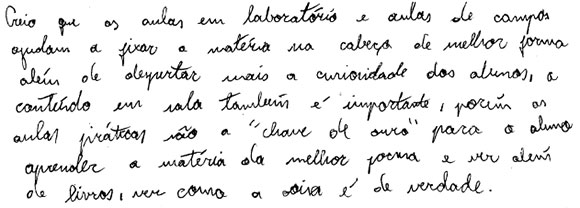 Creio que as aulas em laboratório e aulas de campos
ajudam a fixar a matéria na cabeça de melhor forma
além de despertar mais a curiosidade dos alunos, o
conteúdo em sala também é importante, porém as
aulas práticas são a "chave de ouro" para o aluno
aprender a matéria da melhor forma e ver além
de livros, ver como a coisa é de verdade.